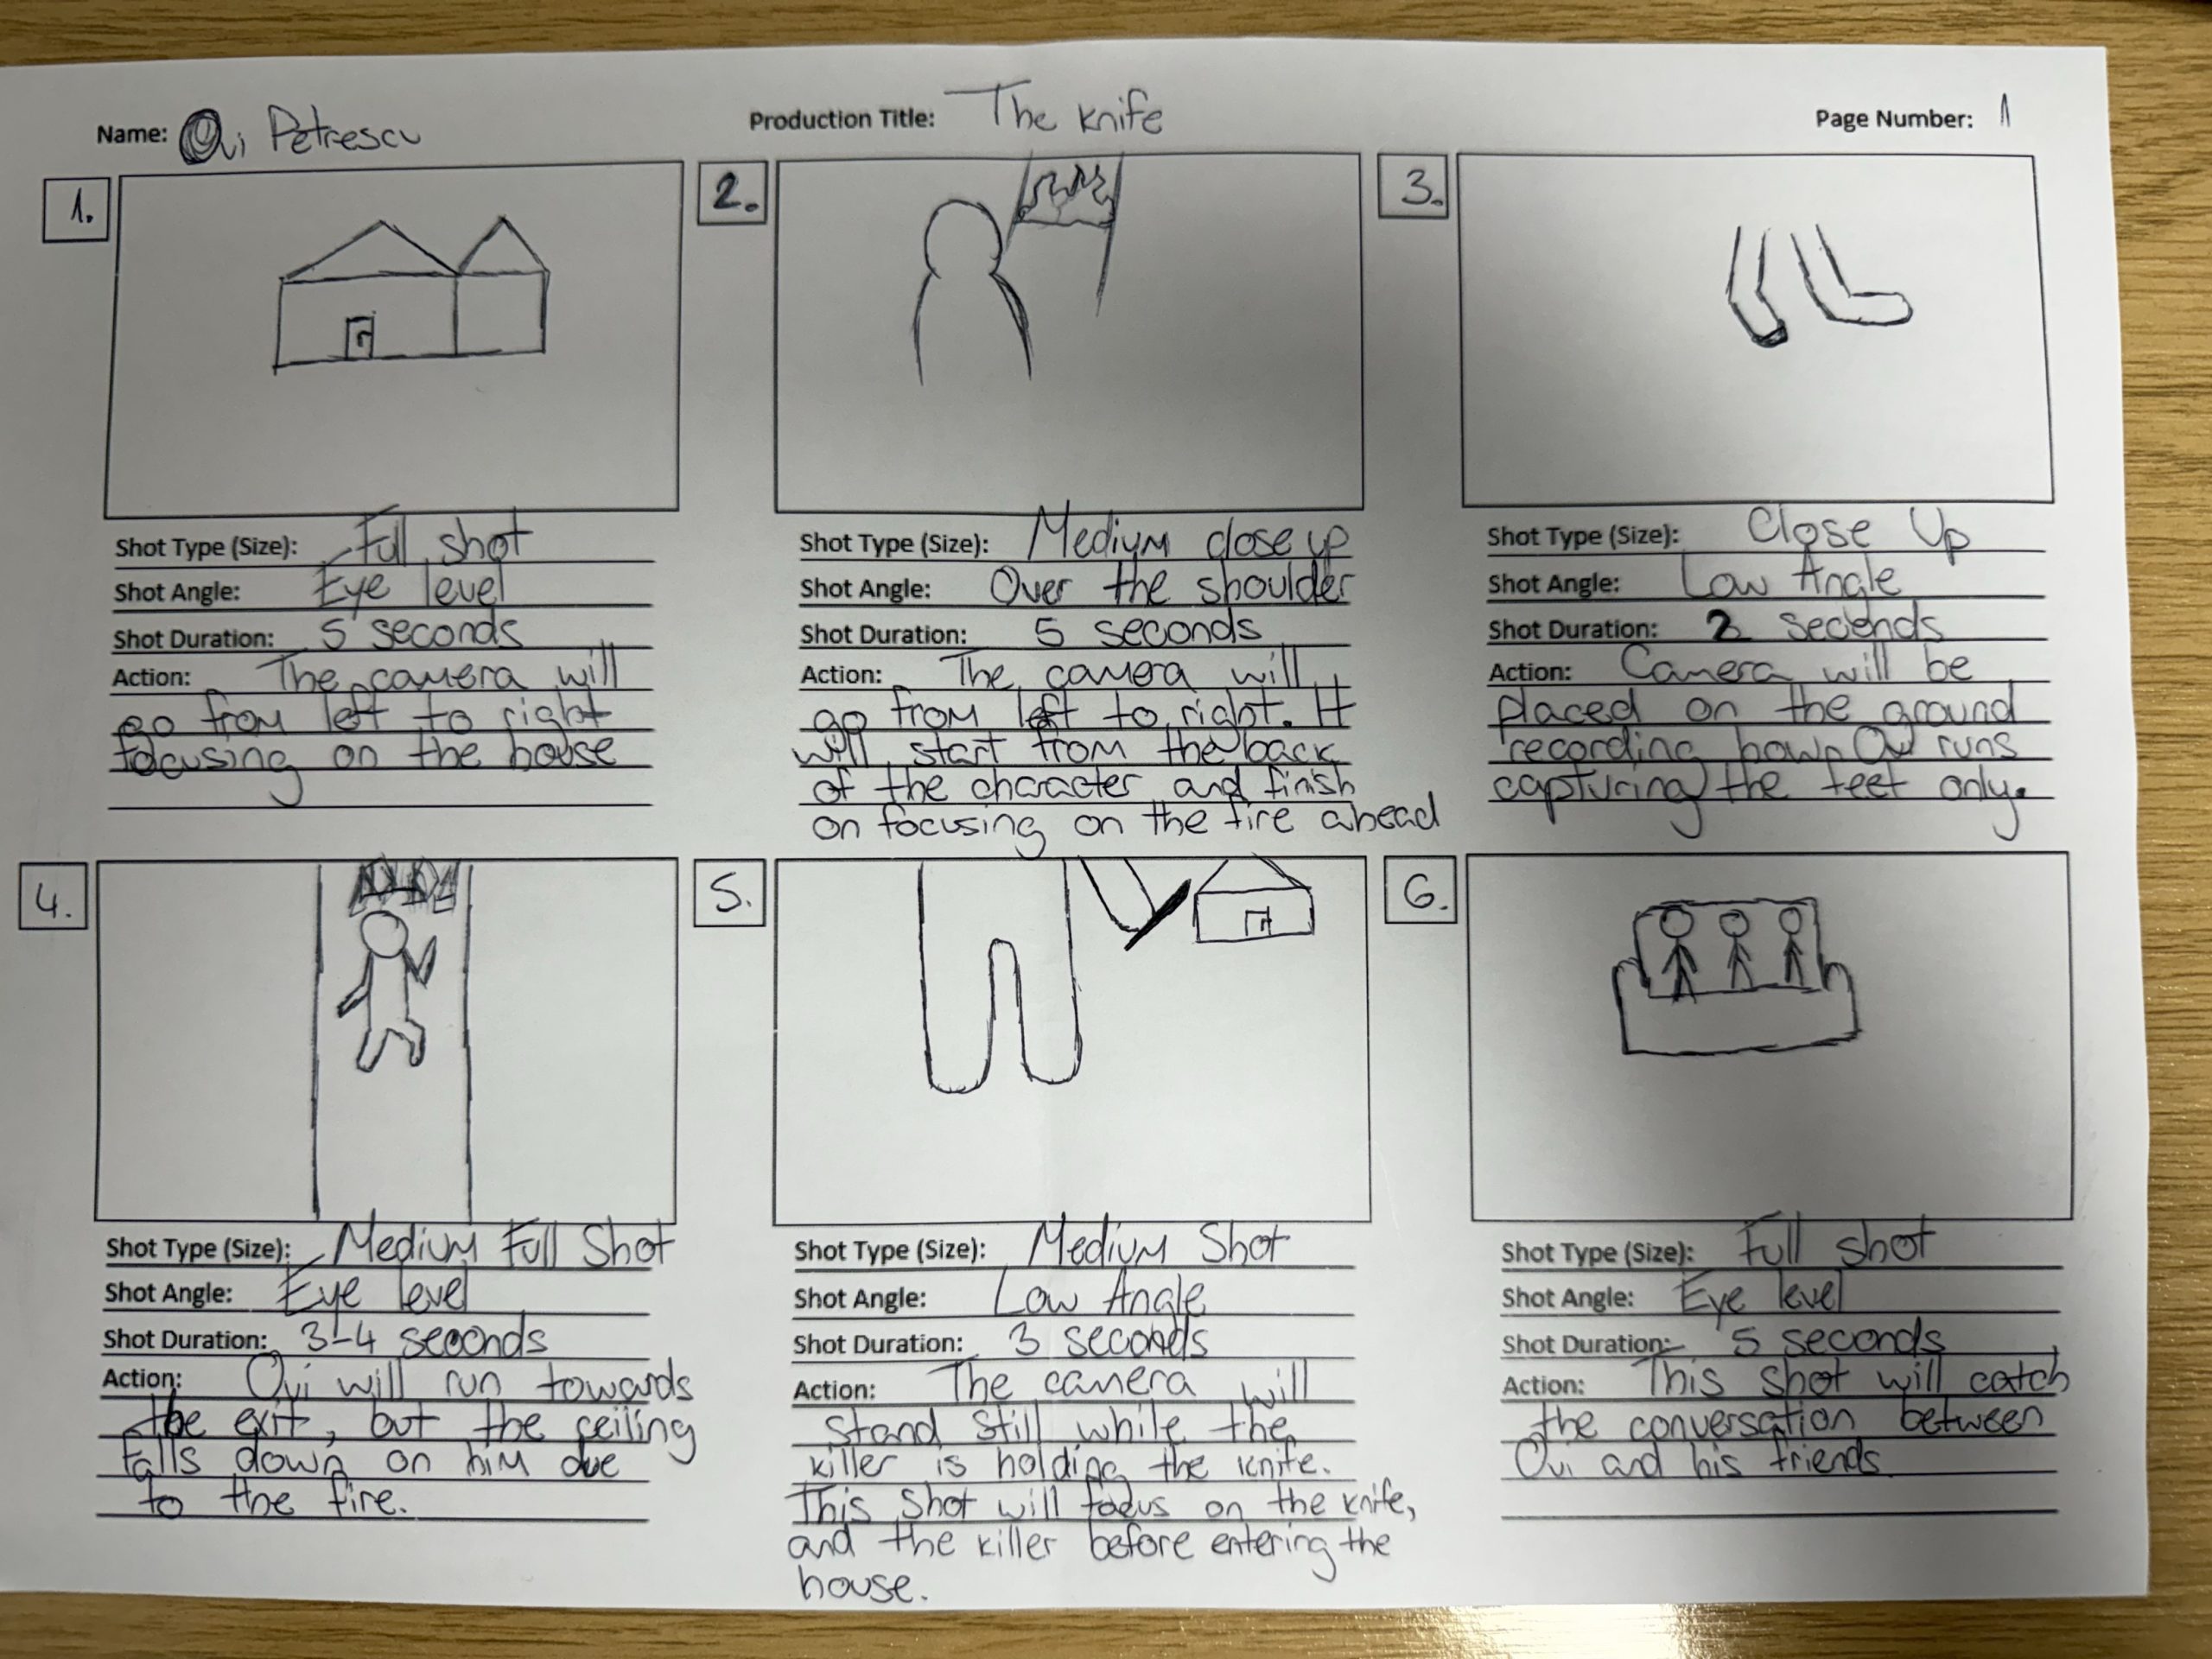 Name: Ovi Petrescu Production Title: The knife Page Number: 1
1.
Shot Type (Size): Full shot
Shot Angle: Eye level
Shot Duration: 5 seconds
Action: The camera will
go from left to right
focusing on the house
2.
Shot Type (Size): Medium close up
Shot Angle: Over the shoulder
Shot Duration: 5 seconds
Action: The camera will
go from left to right. It
will start from the back
of the character and finish
on focusing on the fire ahead
3.
Shot Type (Size): Close Up
Shot Angle: Low Angle
Shot Duration: 2 seconds
Action: Camera will be
placed on the ground
recording how Ovi runs
capturing the feet only.
4.
Shot Type (Size): Medium Full Shot
Shot Angle: Eye level
Shot Duration: 3-4 seconds
Action: Ovi will run towards
the exit, but the ceiling
falls down on him due
to the fire.
5.
Shot Type (Size): Medium Shot
Shot Angle: Low Angle
Shot Duration: 3 seconds
Action: The camera will
stand still while the
killer is holding the knife.
This shot will focus on the knife,
and the killer before entering the
house.
6.
Shot Type (Size): Full shot
Shot Angle: Eye level
Shot Duration: 5 seconds
Action: This shot will catch
the conversation between
Ovi and his friends